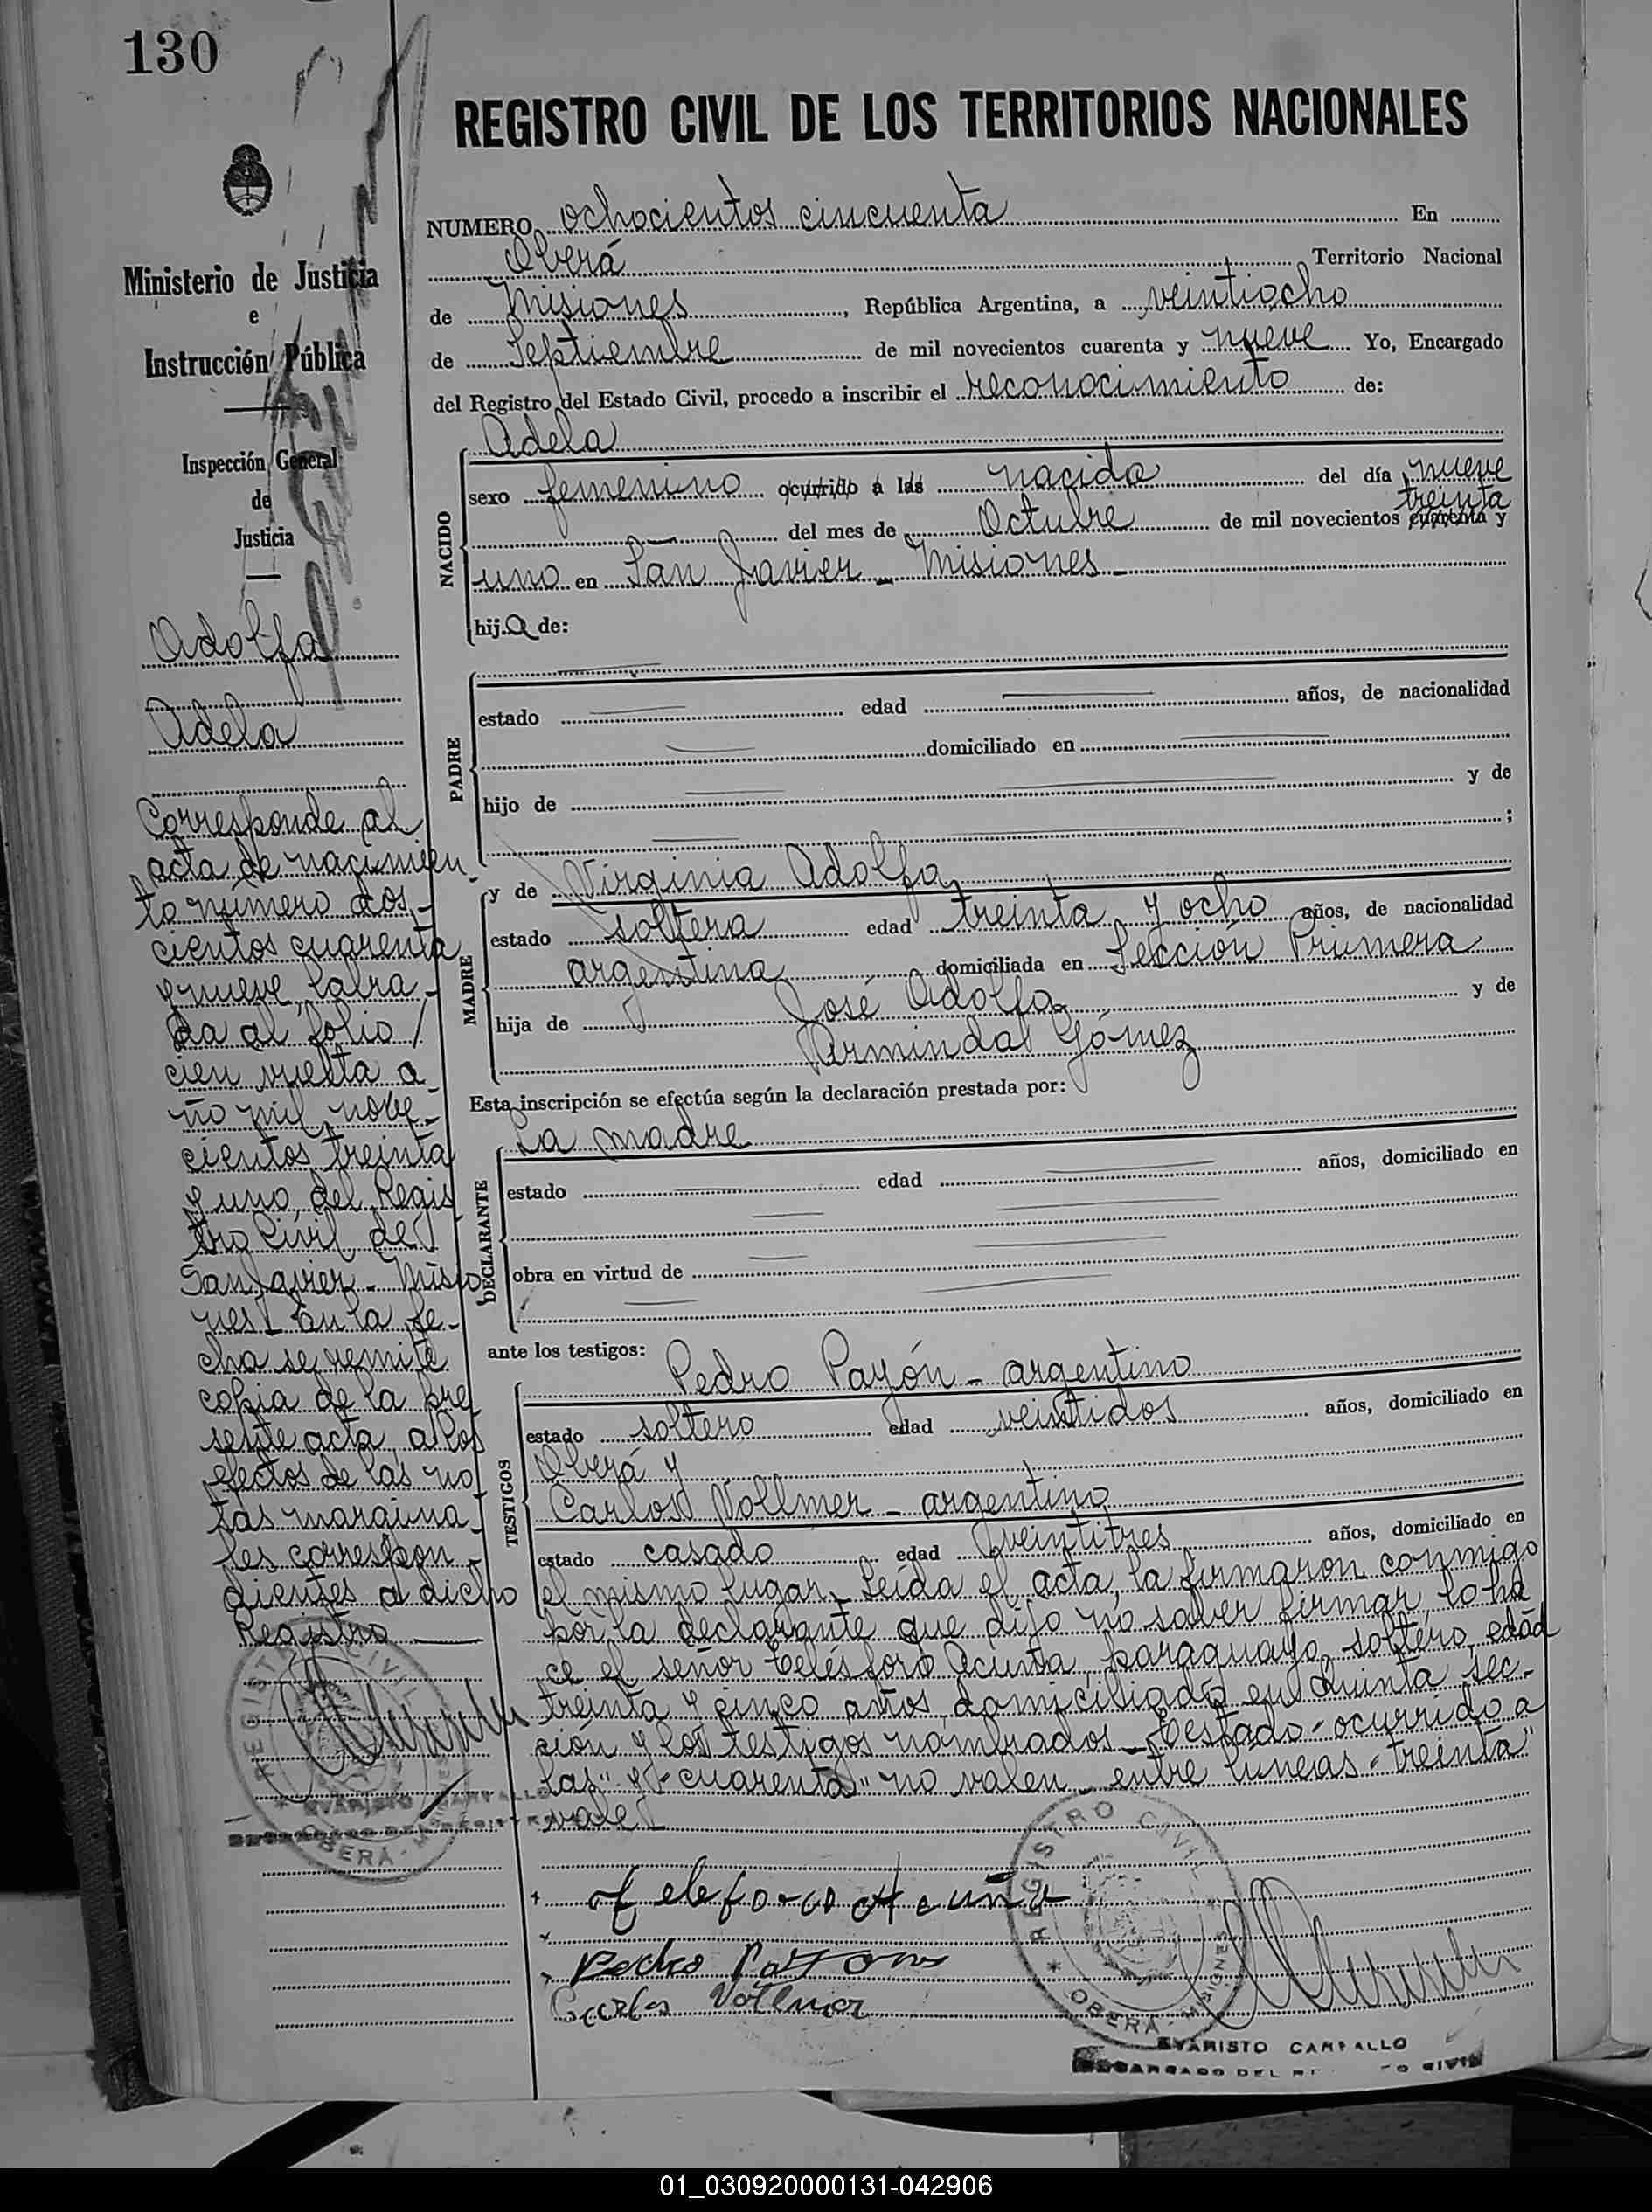 130
REGISTRO CIVIL DE LOS TERRITORIOS NACIONALES
Ministerio de Justicia
e
Instrucción Pública
Inspección General
de
Justicia
Adolfa
Adela
Corresponde al
acta de nacimien-
to número dos-
cientos cuarenta
y nueve, labra-
da al folio /
cien vuelta a-
ño mil nove-
cientos treinta
y uno, del Regis
tro Civil de
San Javier - Misio
nes - En la fe-
cha se remite
copia de la pre
sente acta, a los
efectos de las no
tas margina-
les correspon-
dientes a dicho
Registro
NUMERO ochocientos cincuenta En
Oberá Territorio Nacional
de Misiones, República Argentina, a veintiocho
de Septiembre de mil novecientos cuarenta y nueve Yo, Encargado
del Registro del Estado Civil, procedo a inscribir el reconocimiento de:
NACIDO
Adela
sexo femenino ocurrido a las nacida del día nueve
treinta
del mes de Octubre de mil novecientos cuarenta y
uno en San Javier - Misiones -
hija de:
PADRE
estado edad años, de nacionalidad
domiciliado en
hijo de y de
;
MADRE
y de Virginia Adolfa
estado soltera edad treinta y ocho años, de nacionalidad
argentina domiciliada en Sección Primera
hija de José Adolfa y de
Arminda Gómez
Esta inscripción se efectúa según la declaración prestada por:
DECLARANTE
La madre
estado edad años, domiciliado en
obra en virtud de
ante los testigos:
TESTIGOS
Pedro Payón - argentino
estado soltero edad veintidos años, domiciliado en
Oberá y
Carlos Vollmer - argentino
estado casado edad veintitres años, domiciliado en
el mismo lugar. Leída el acta, la firmaron conmigo
por la declarante que dijo no saber firmar, lo ha
ce el señor Celésforo Acuña, paraguayo, soltero, edad
treinta y cinco años, domiciliado en Quinta sec-
ción y los testigos nombrados - Testado - ocurrido a
las" y "cuarenta" no valen - entre líneas - treinta"
vale
Teleforo Acuña
Pedro Payon
Carlos Vollmer
REGISTRO CIVIL
* OBERÁ - MISIONES
EVARISTO CAMPALLO
ENCARGADO DEL REGISTRO
REGISTRO CIVIL
* OBERÁ - MISIONES
EVARISTO CAMPALLO
ENCARGADO DEL REGISTRO CIVIL
01_030920000131-042906